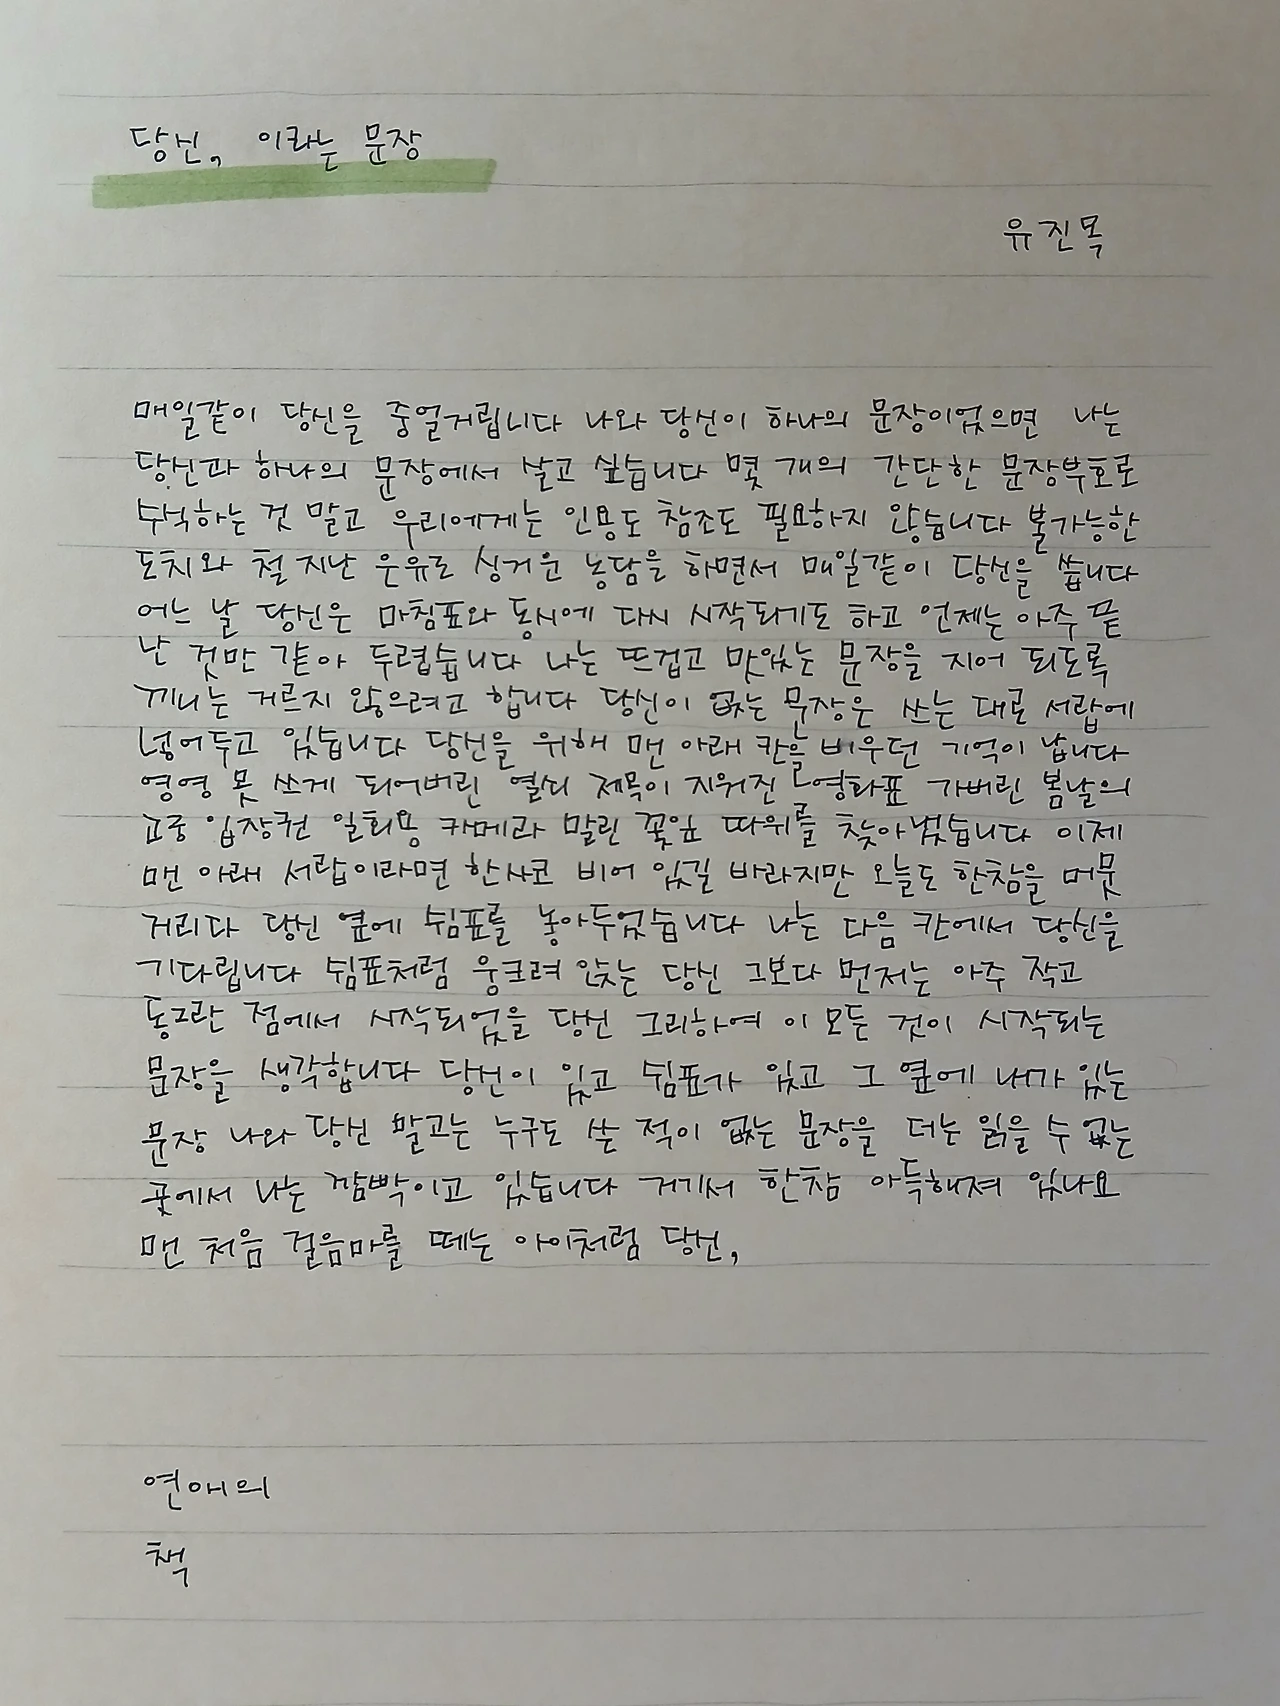 당신, 이라는 문장
유진목
매일같이 당신을 중얼거립니다 나와 당신이 하나의 문장이었으면 나는
당신과 하나의 문장에서 살고 싶습니다 몇 개의 간단한 문장부호로
수식하는 것 말고 우리에게는 인용도 참조도 필요하지 않습니다 불가능한
도치와 철 지난 은유로 싱거운 농담을 하면서 매일같이 당신을 씁니다
어느 날 당신은 마침표와 동시에 다시 시작되기도 하고 언제는 아주 끝
난 것만 같아 두렵습니다 나는 뜨겁고 맛있는 문장을 지어 되도록
끼니는 거르지 않으려고 합니다 당신이 없는 문장은 쓰는 대로 서랍에
넣어두고 있습니다 당신을 위해 맨 아래 칸을 비우던 기억이 납니다
영영 못 쓰게 되어버린 열쇠 제목이 지워진 영화표 가버린 봄날의
고궁 입장권 일회용 카메라 말린 꽃잎 따위를 찾아냈습니다 이제
맨 아래 서랍이라면 한사코 비어 있길 바라지만 오늘도 한참을 머뭇
거리다 당신 옆에 쉼표를 놓아두었습니다 나는 다음 칸에서 당신을
기다립니다 쉼표처럼 웅크려 앉는 당신 그보다 먼저는 아주 작고
동그란 점에서 시작되었을 당신 그리하여 이 모든 것이 시작되는
문장을 생각합니다 당신이 있고 쉼표가 있고 그 옆에 내가 있는
문장 나와 당신 말고는 누구도 쓴 적이 없는 문장을 더는 읽을 수 없는
곳에서 나는 깜빡이고 있습니다 거기서 한참 아득해져 있나요
맨 처음 걸음마를 떼는 아이처럼 당신,
연애의
책